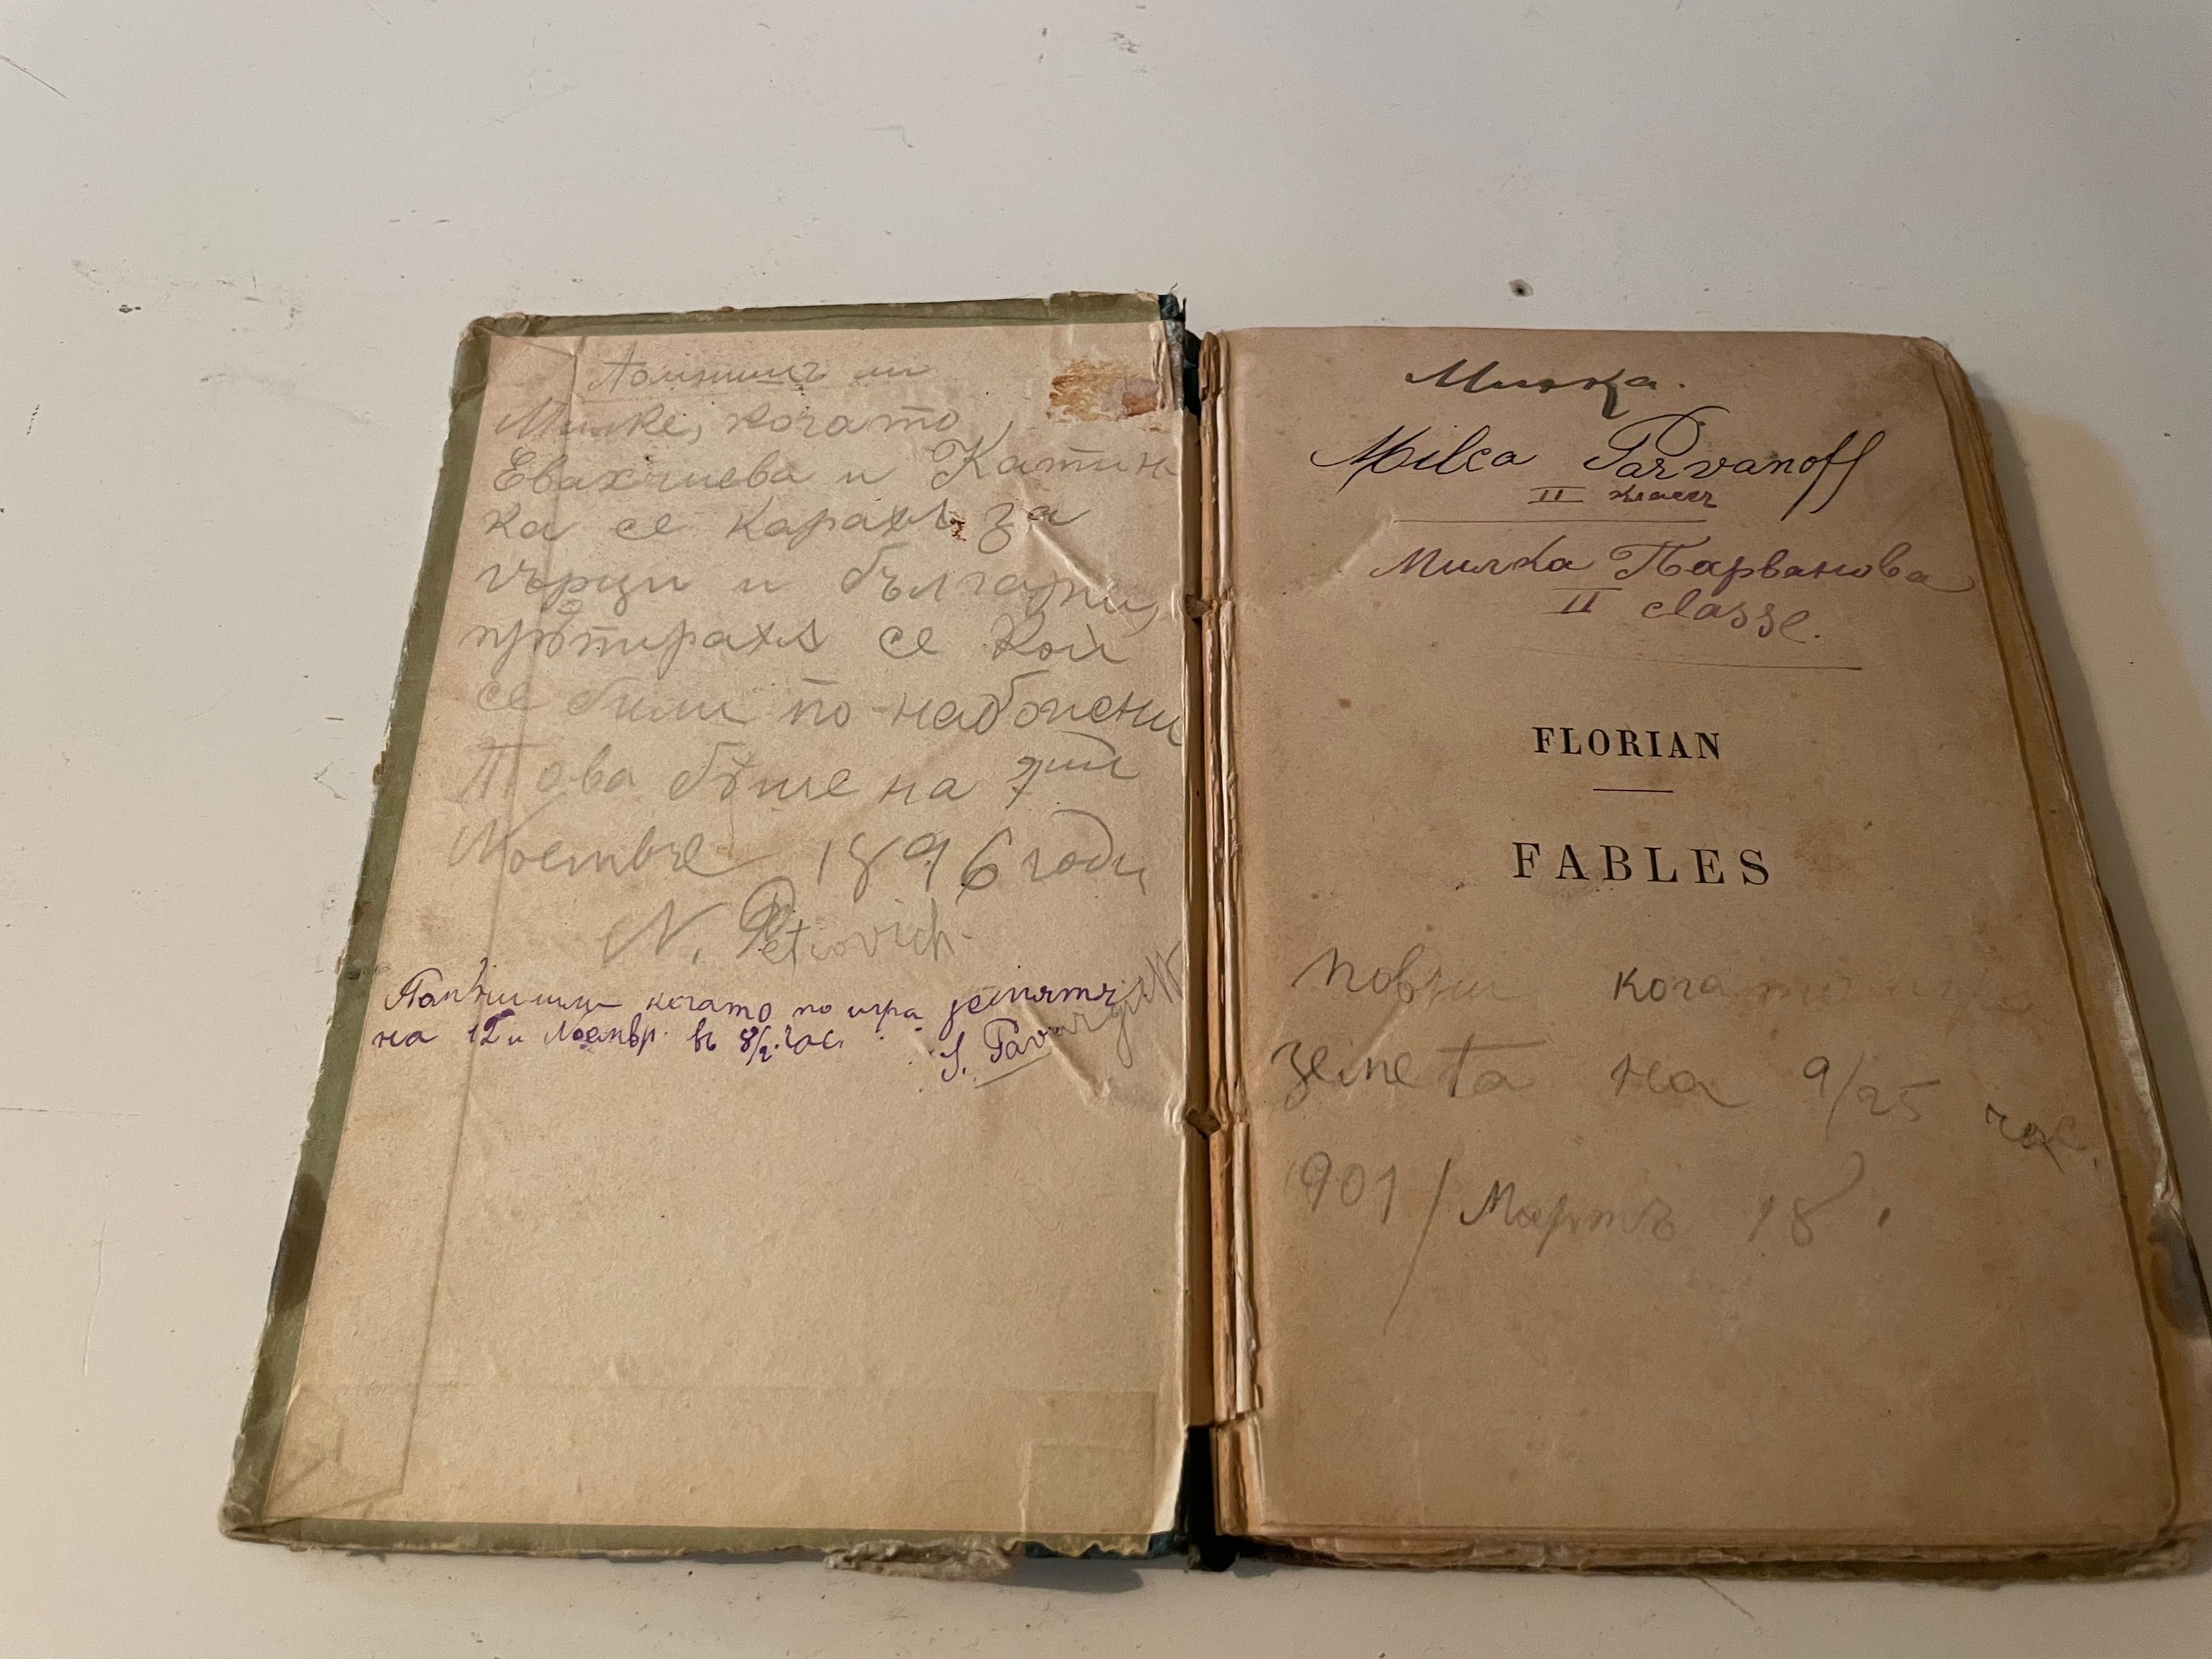 Помнишъ ли
Милке, когато
и Катин
ка се карахѫ за
гърци и българи,
прѣпирахѫ се кои
се били по-набожни
Това бѣше на 7ий
Ноемврѣ 1896 год.
N. Petrovich
когато поигра земята
на 12и Ноемвр. въ 8/2 час.
S. Pav
Милка.
Milca Parvanoff
II классъ
Милка Парванова
II classe.
FLORIAN
FABLES
когато
земета на 9/25 час.
901/Мартъ 18